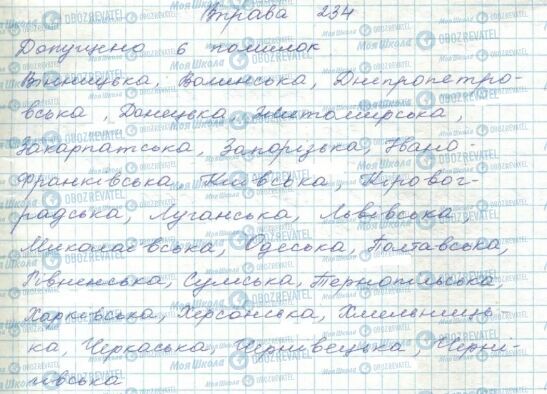 Вправа 234
Допущено 6 помилок
Вінницька, Волинська, Дніпропетро-
вська, Донецька, Житомирська,
Закарпатська, Запорізька, Івано-
Франківська, Київська, Кіровог-
радська, Луганська, Львівська
Миколаївська, Одеська, Полтавська,
Рівненська, Сумська, Тернопільська,
Харківська, Херсонська, Хмельниць-
ка, Черкаська, Чернівецька, Черні-
гівська